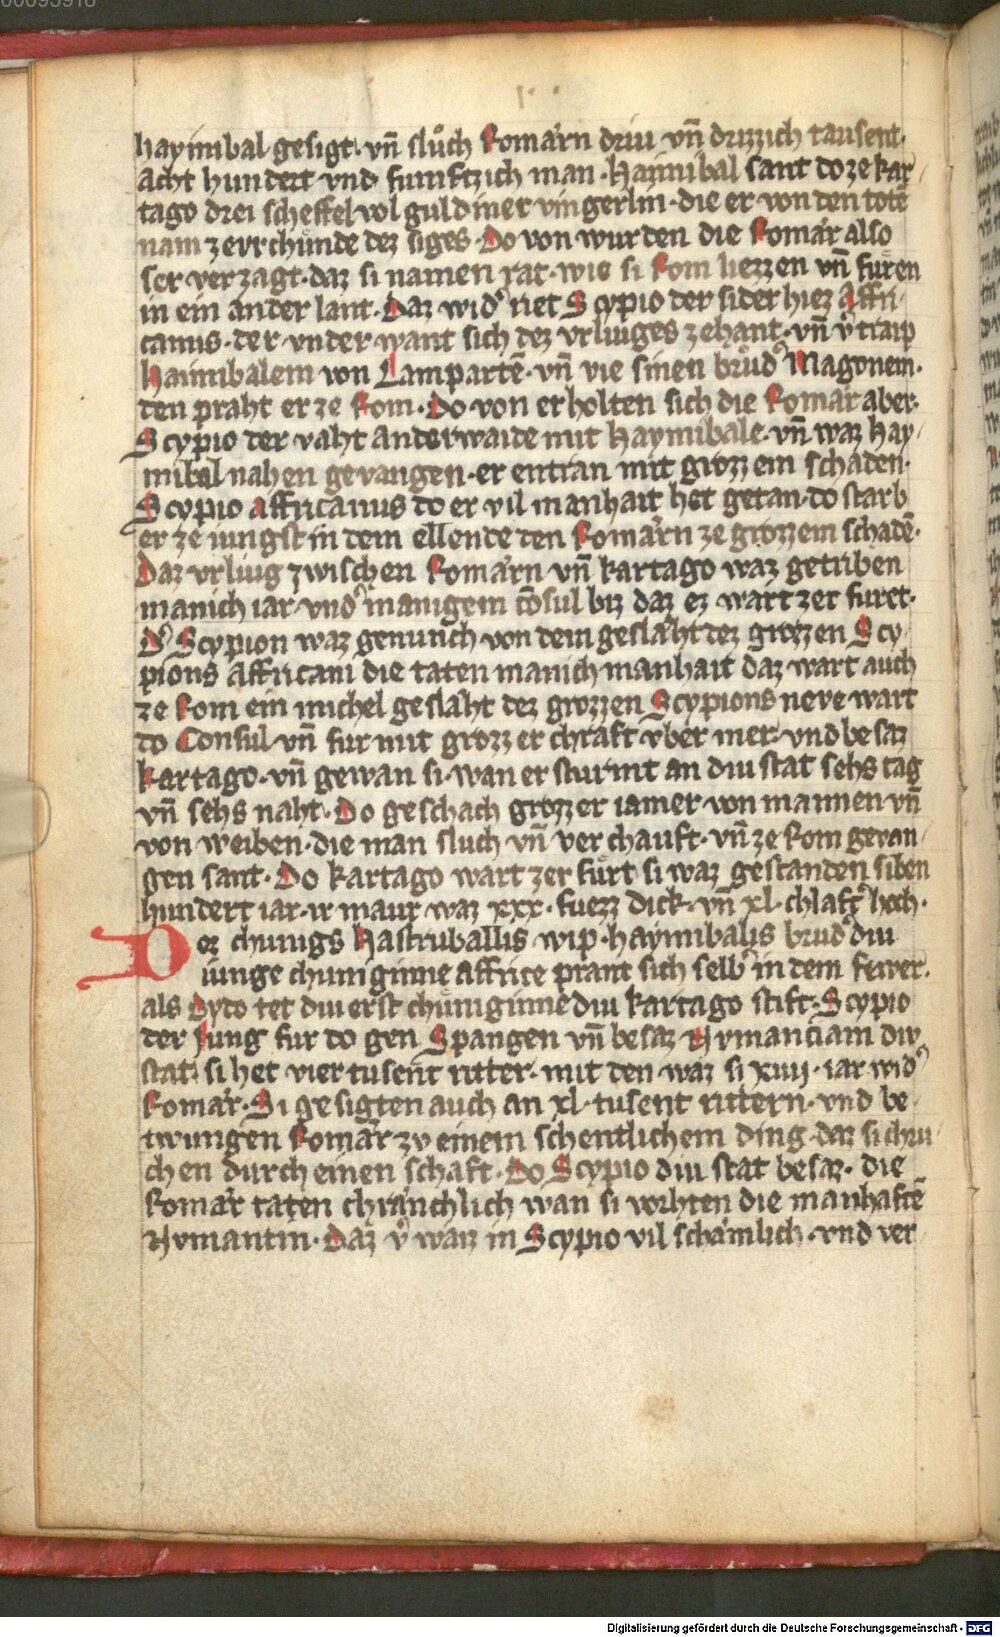 00093918
haymibal gesigt. vñ slůch Romarn driu vñ drizzich tausent.
acht hundert vnd fumftzich man. Haymibal sant do ze kar
tago drei scheffel vol guldiner vingerlin. die er von den totē
nam ze vrchunde dez siges. Do von wurden die Romar also
ser verzagt. daz si namen rat. wie si Rom liezzen vñ furen
in ein ander lant. Daz wid' riet Scypio der sider hiez Affri
canus. der vnder want sich dez vrliuges zehant. vñ v'traip
Haimibalem von Lampartē. vñ vie sinen brůd' Magonem.
den praht er ze Rom. Do von erholten sich die Romar aber.
Scypio der vaht anderwaide mit Haymibale. vñ waz hay
mibal nahen gevangen. er entran mit grozzem schaden.
Scypio Affricanus do er vil manhait het getan. do starb
er ze iungst in dem ellende den Romarn ze grozzem schadē.
Daz vrliug zwischen Romarn vñ kartago waz getriben
manich iar. vnd' manigem cōsul biz daz ez wart zer furet.
D' Scypion waz genunch von dem geslaht dez grozzen Scy
pions Affricani die taten manich manhait daz wart auch
ze Rom ein michel geslaht dez grozzen Scypions neve wart
do Consul vñ fur mit grozzer chraft vber mer. vnd besaz
kartago. vñ gewan si. wan er sturmt an diu stat sehs tag
vñ sehs naht. Do geschach grozzer iamer von mannen vñ
von weiben. die man sluch vñ verchauft. vñ ze Rom gevan
gen sant. Do kartago wart zer fürt si waz gestanden siben
hundert iar. ir maur waz xxx. fuezz dick. vñ xl. chlaft' hoch.
Dez chunigs Hastruballis wip. haymibalis brud' diu
iunge chuniginne Affrice prant sich selb' in dem fewer.
als Dydo tet diu erst chůniginne diu kartago stift. Scypio
der Jung fur do gen Spangen vñ besaz Nymanciam diw
stat. si het vier tusent ritter. mit den waz si xiiij. iar wid'
Romar. Si gesigten auch an xl. tusent rittern. vnd be
twungen Romar zv einem schentlichem ding. daz si chru
chen durch einen schaft. Do Scypio diu stat besaz. die
Romar taten chranchlich wan si vorhten die manhaftē
Nymantin. Daz v'waiz in Scypio vil schamlich. vnd ver
Digitalisierung gefördert durch die Deutsche Forschungsgemeinschaft - DFG